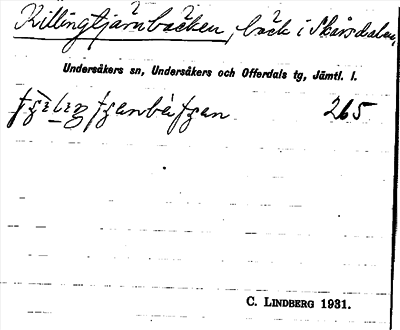 Killingtjärnbäcken, bäck i Skårsdalen,
Undersåkers sn, Undersåkers och Offerdals tg, Jämtl. l.
265
C. LINDBERG 1931.